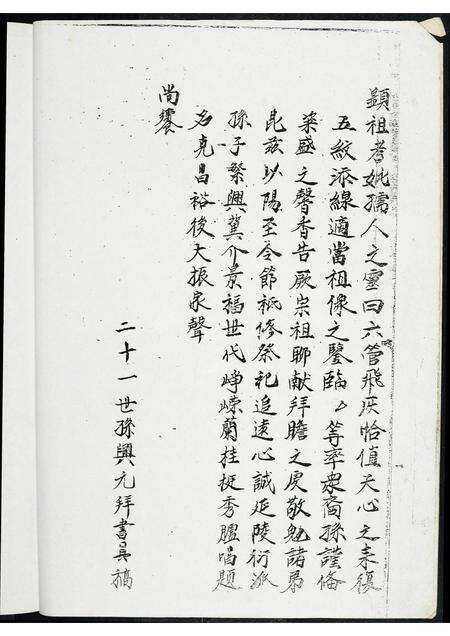 顯祖考妣孺人之靈曰六管飛灰恰值天心之來復
五紋添線適當祖像之鑒臨厶等率眾裔孫謹備
粢盛之馨香告厥宗祖聊献拜瞻之虔敬勉諸弟
昆兹以陽至令節祗修祭祀追遠心誠延陵衍派
孫子繁興冀介景福世代峥嵘蘭桂挺秀臚唱題
名克昌裕後大振家聲
尚饗
二十一世孫興元拜書呈稿